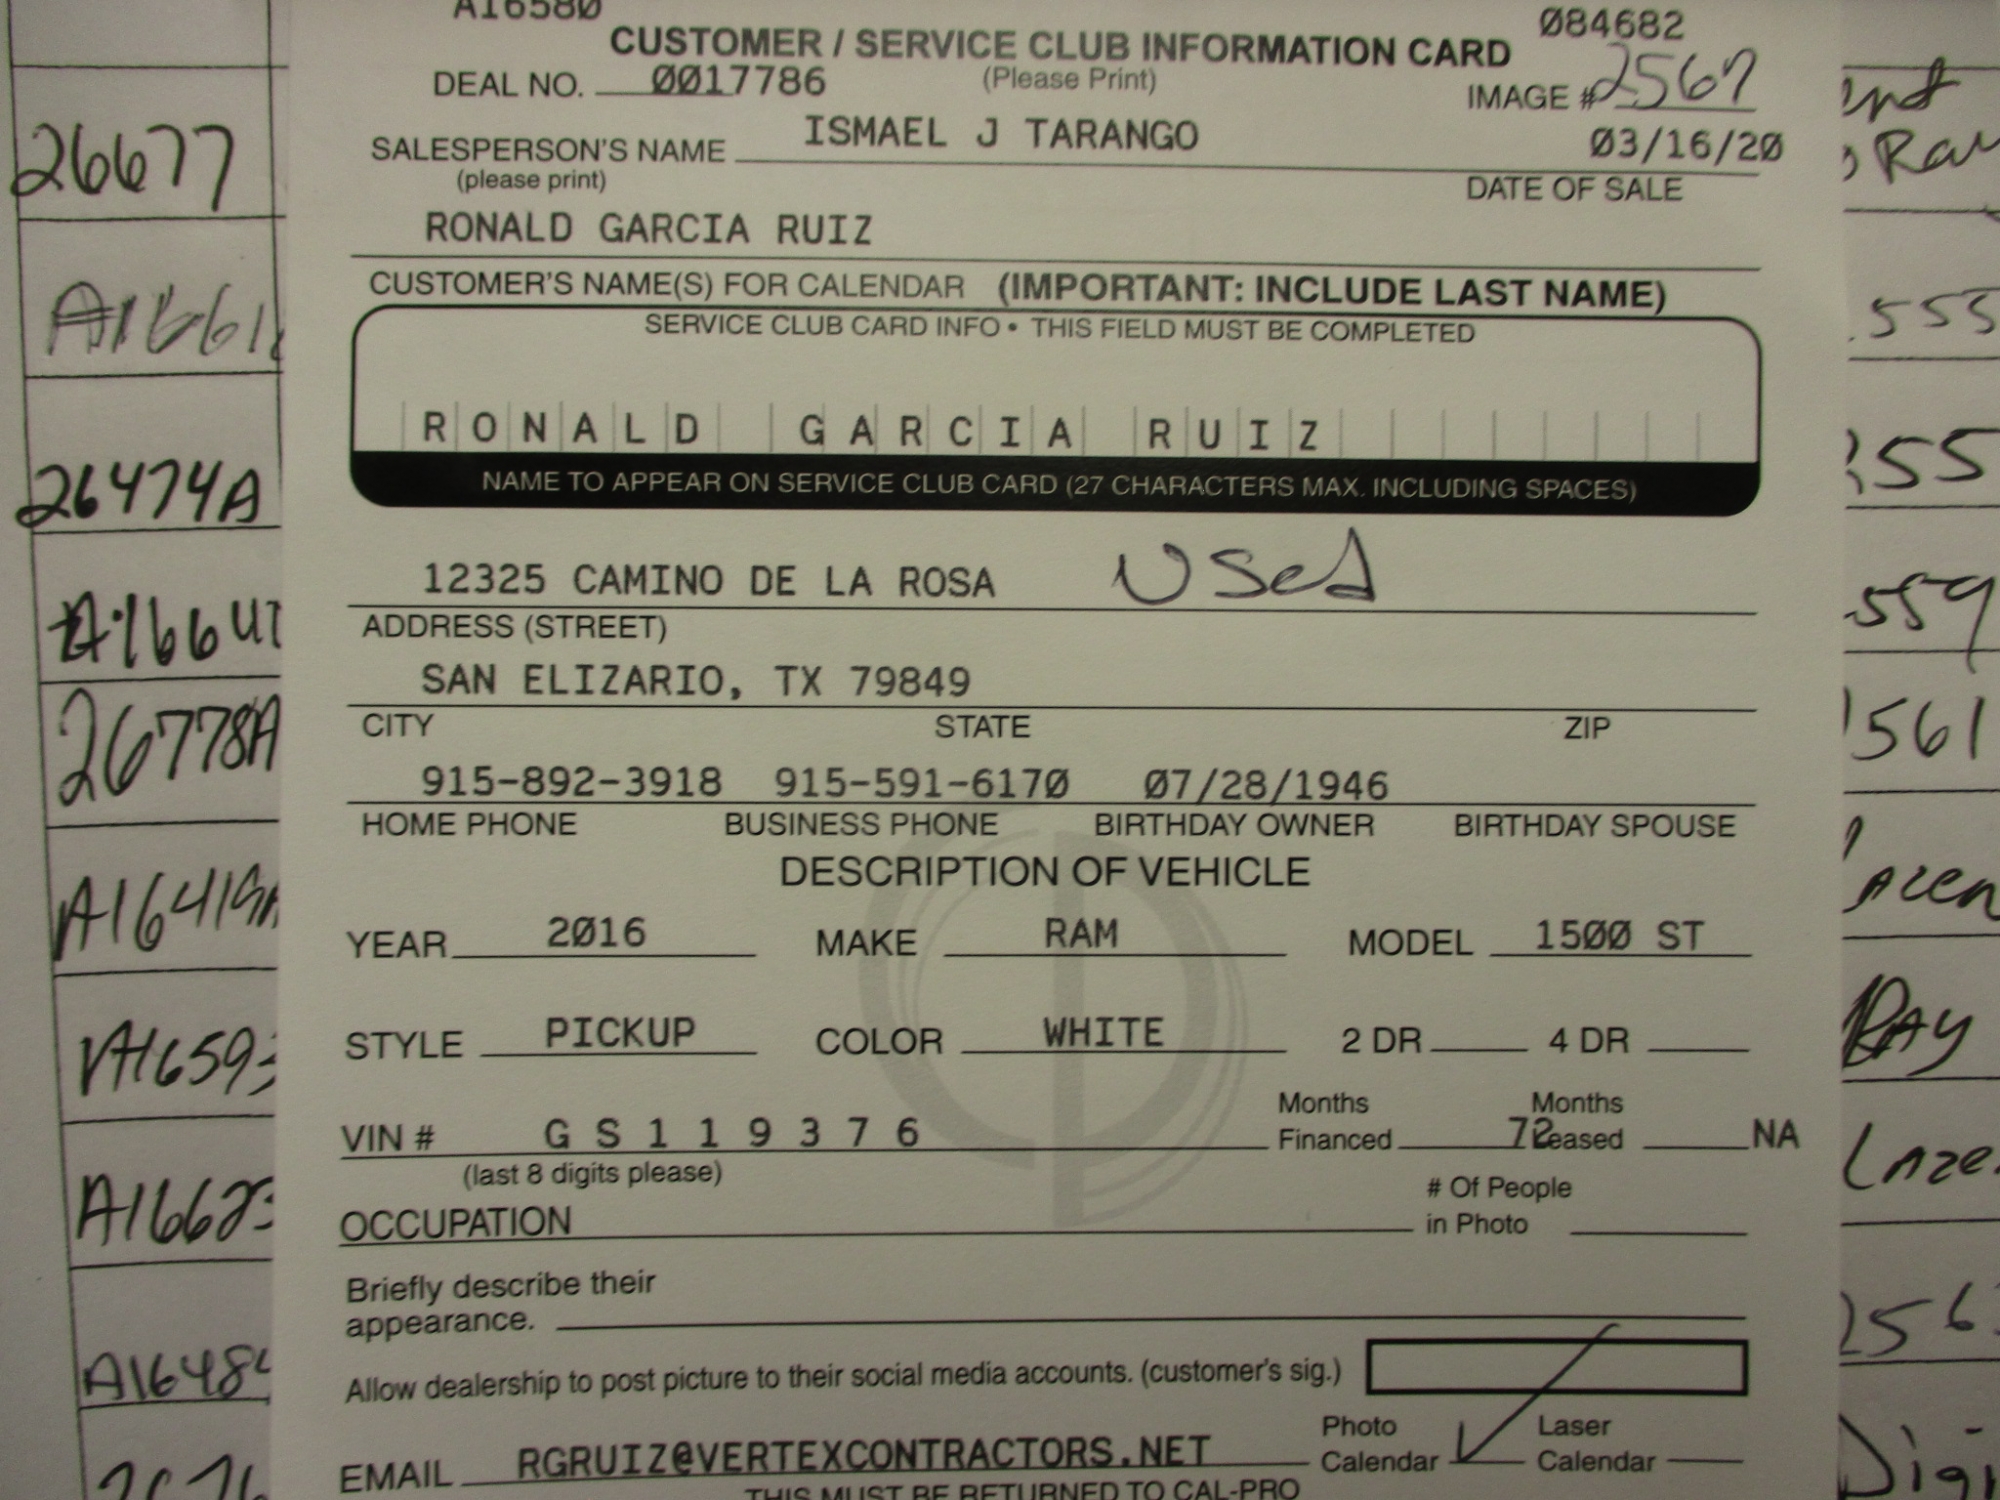 A16580
084682
CUSTOMER / SERVICE CLUB INFORMATION CARD
DEAL NO. 0017786 (Please Print) IMAGE # 2567
SALESPERSON'S NAME ISMAEL J TARANGO 03/16/20
(please print) DATE OF SALE
RONALD GARCIA RUIZ
CUSTOMER'S NAME(S) FOR CALENDAR (IMPORTANT: INCLUDE LAST NAME)
SERVICE CLUB CARD INFO • THIS FIELD MUST BE COMPLETED
RONALD GARCIA RUIZ
NAME TO APPEAR ON SERVICE CLUB CARD (27 CHARACTERS MAX. INCLUDING SPACES)
12325 CAMINO DE LA ROSA Used
ADDRESS (STREET)
SAN ELIZARIO, TX 79849
CITY STATE ZIP
915-892-3918 915-591-6170 07/28/1946
HOME PHONE BUSINESS PHONE BIRTHDAY OWNER BIRTHDAY SPOUSE
DESCRIPTION OF VEHICLE
YEAR 2016 MAKE RAM MODEL 1500 ST
STYLE PICKUP COLOR WHITE 2 DR 4 DR
VIN # G S 1 1 9 3 7 6 Months Financed 72 Months Leased NA
(last 8 digits please)
OCCUPATION # Of People in Photo
Briefly describe their
appearance.
Allow dealership to post picture to their social media accounts. (customer's sig.)
EMAIL RGRUIZ@VERTEXCONTRACTORS.NET Photo Calendar Laser Calendar
THIS MUST BE RETURNED TO CAL-PRO
26677
26474A
26778A